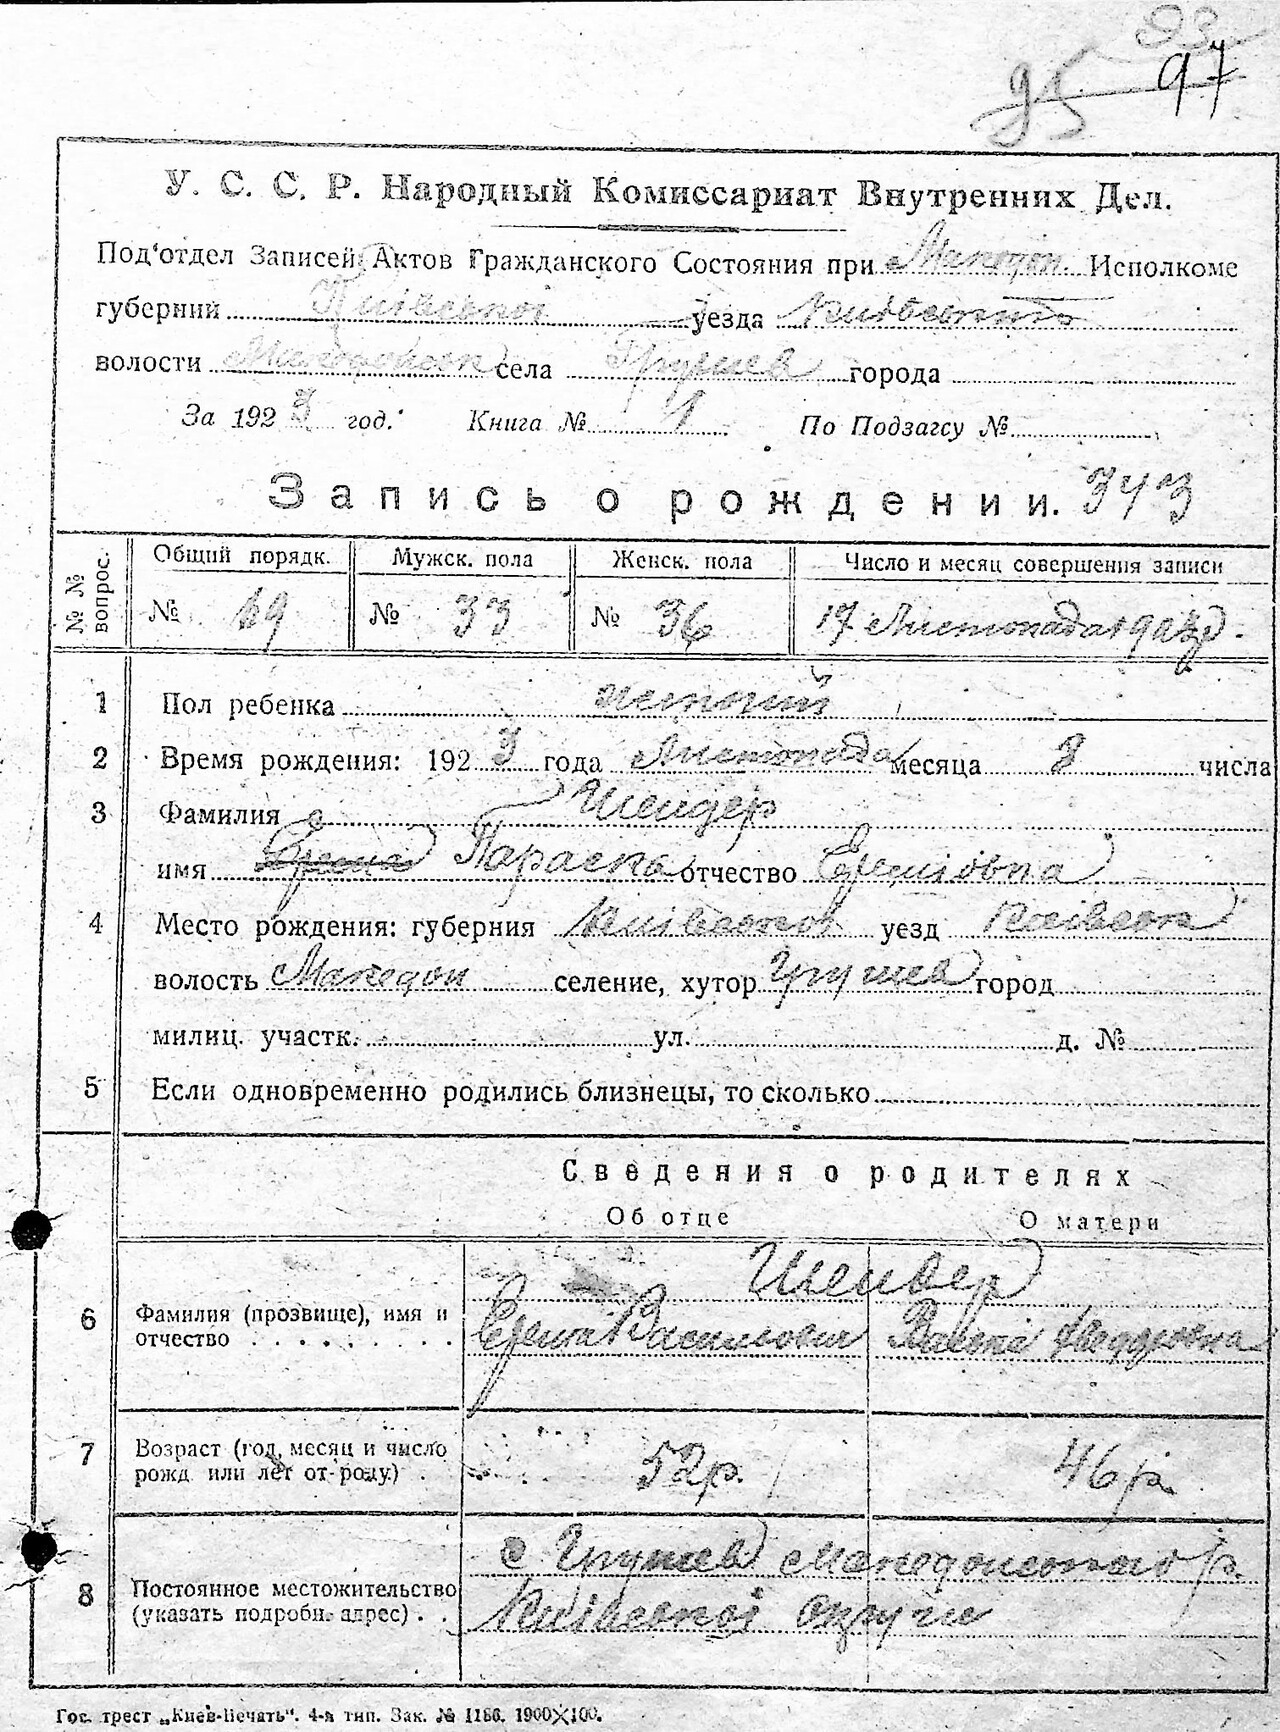 93
95 97
У. С. С. Р. Народный Комиссариат Внутренних Дел.
Под'отдел Записей Актов Гражданского Состояния при Македон. Исполкоме
губерний Київської уезда Київського
волости села Грушев города
За 1923 год. Книга № 1 По Подзагсу №
Запись о рождении. 343
№ № вопрос. Общий порядк. Мужск. пола Женск. пола Число и месяц совершения записи
№ 69 № 33 № 36 17 Листопада 1923 р.
1 Пол ребенка жіночий
2 Время рождения: 1923 года Листопада месяца 8 числа
3 Фамилия Шендер
имя Параска отчество Єреміовна
4 Место рождения: губерния Київської уезд Київськ
волость Македон селение, хутор Грушев город
милиц. участк. ул. д. №
5 Если одновременно родились близнецы, то сколько
Сведения о родителях
Об отце О матери
Шендер
6 Фамилия (прозвище), имя и отчество Єрема Василович Федоровна
7 Возраст (год, месяц и число рожд или лет от-роду.) 52 р. 46 р.
8 Постоянное местожительство (указать подробн. адрес) с Грушев Македонского р.
Київської округи
Гос. трест „Киев-Печать“. 4-я тип. Зак. № 1186. 1900×100.